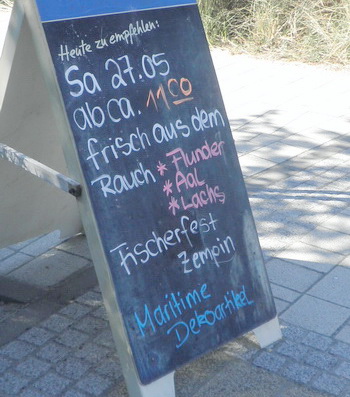 Heute zu empfehlen:
Sa 27.05
ab ca. 11 00
frisch aus dem
Rauch * Flunder
* Aal
* Lachs
Fischerfest
Zempin
Maritime
Dekoartikel